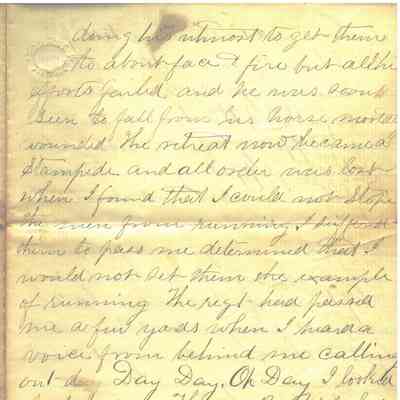 doing his utmost to get them
to about face & fire but all his
efforts failed and he was soon
seen to fall from his horse mortal
wounded The retreat now became a
stampede and all order was lost
when I found that I could not stop
the men from running I
them to pass me determined that I
would not set them the example
of running The regt had passed
me a few yards when I heard a
voice from behind me calling
out Day Day, Oh Day I looked